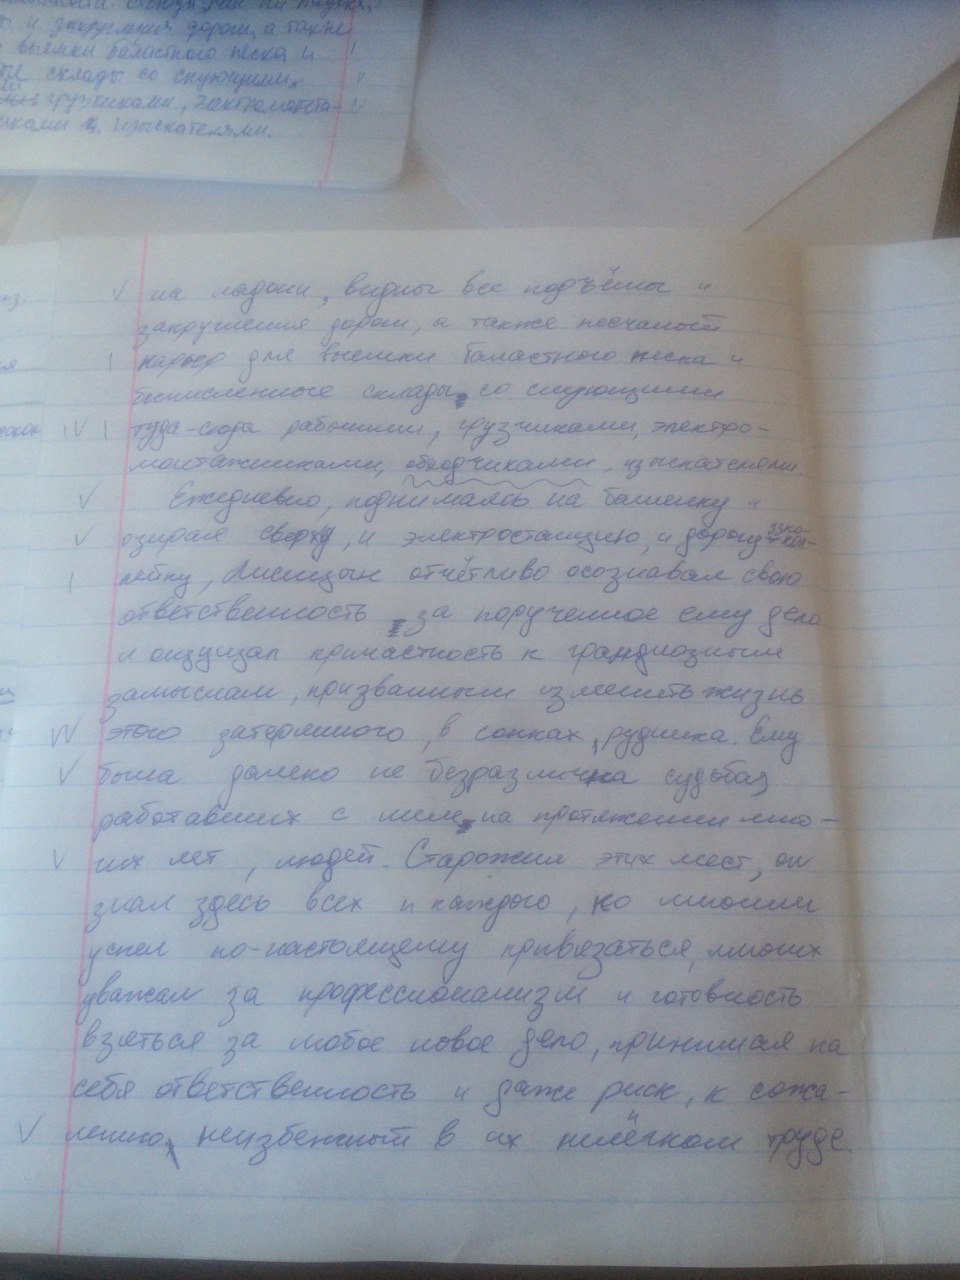 ы и закругления дороги, а также
выемки баластного песка и
склады со снующими,
грузчиками, электромонта-
иками и, изыскателями.
на ладони, видны все подъёмы и
закругления дороги, а также песчаный
карьер для выемки баластного песка и
бесчисленные склады, со снующими
туда-сюда рабочими, грузчиками, электро-
монтажниками, обходчиками, изыскателями.
Ежедневно, поднимаясь на башенку и
озирая сверху, и электростанцию, и дорогу узко-
колейку, Лисицын отчётливо осознавал свою
ответственность за порученное ему дело
и ощущал причастность к грандиозным
замыслам, призванным изменить жизнь
этого затерянного, в сопках, рудника. Ему
была далеко не безразлична судьба,
работавших с ним, на протяжении мно-
гих лет, людей. Старожил этих мест, он
знал здесь всех и каждого, ко многим
успел по-настоящему привязаться, многих
уважал за профессионализм и готовность
взяться за любое новое дело, принимая на
себя ответственность и даже риск, к сожа-
лению, неизбежный в их нелёгком труде.